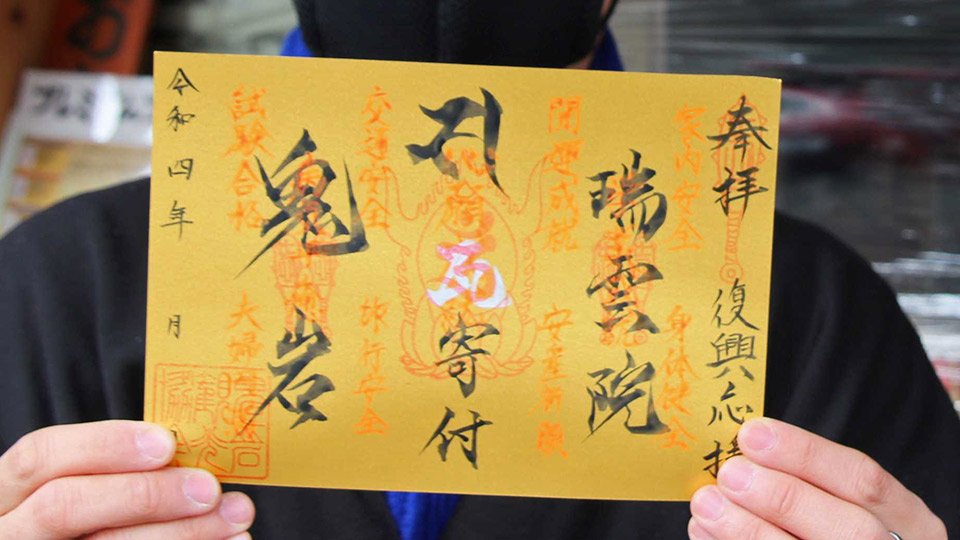 奉拝 復興応援
家内安全 身体健全
瑞雲院
開運成就 安産祈願
瓦寄付
交通安全 旅行安全
鬼岩
試験合格
令和四年 月